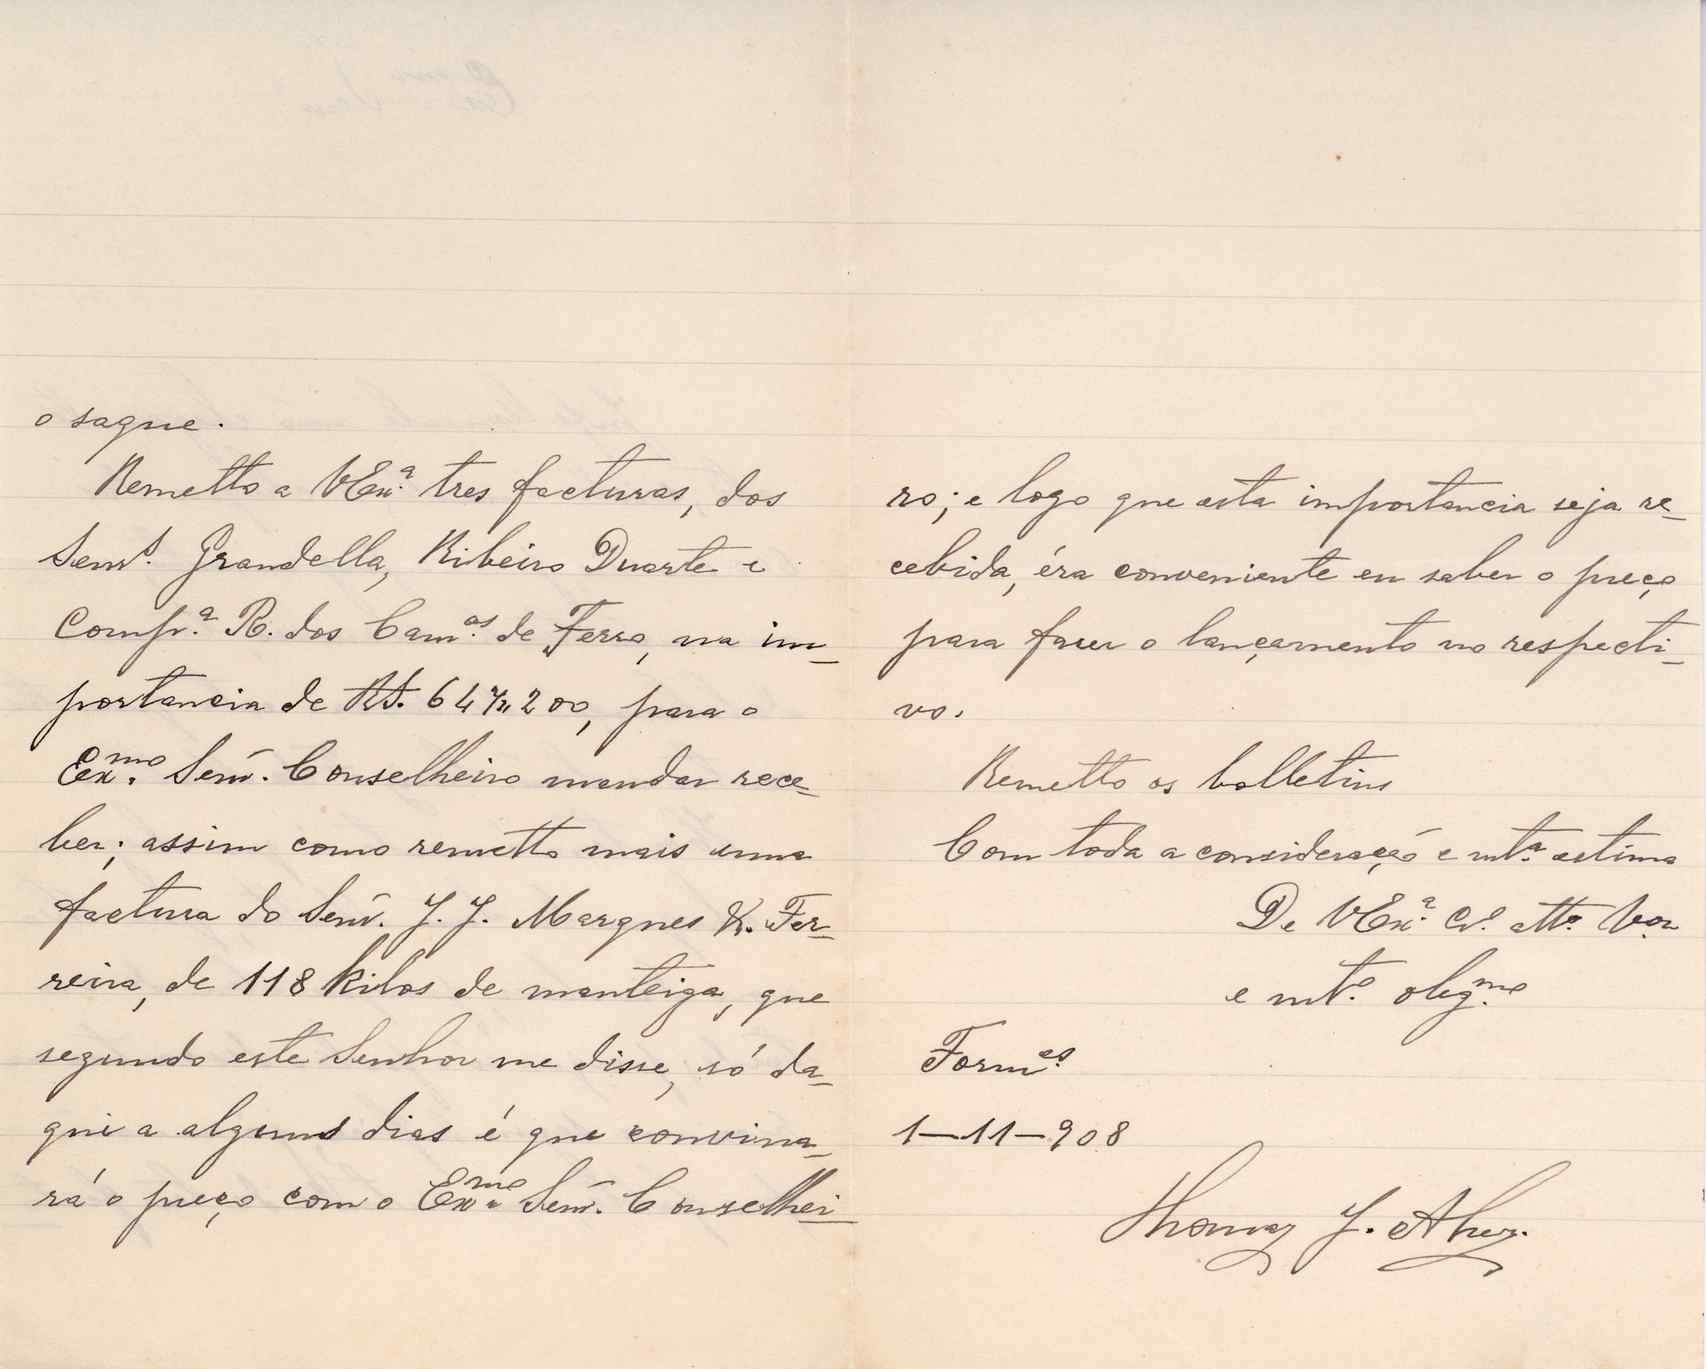 o saque.
Remetto a VExª. tres facturas, dos
Senrs. Grandella, Ribeiro Duarte e
Compª. R. dos Camos. de Ferro, na im-
portancia de RS. 647$200, para o
Exmo. Senr. Conselheiro mandar rece-
ber; assim como remetto mais uma
factura do Senr. J. J. Marques & Fer-
reira, de 118 kilos de manteiga, que
segundo este Senhor me disse, só da-
qui a alguns dias é que convina-
rá o preço com o Exmo. Senr. Conselhei-
ro; e logo que esta importancia seja re-
cebida, éra conveniente eu saber o preço
para fazer o lançamento no respecti-
vo.
Remetto os bolletins
Com toda a consideração e mtª. estima
De VExª. Cr. attº. Vor.
e mtº. obgmo.
Formes.
1-11-908
Thomaz J.